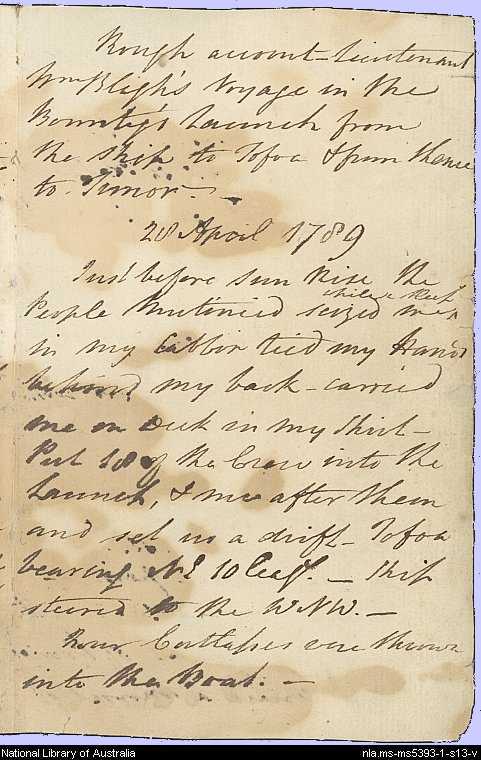 Rough account – Lieutenant
Wm Bligh's Voyage in the
Bounty's Launch from
the ship to Tofoa & from thence
to Timor –
28 April 1789
Just before sun rise the
People Mutinied seized me
while asleep
in my Cabbin tied my Hands
behind my back – carried
me on Deck in my Shirt –
Put 18 of the Crew into the
Launch, & me after them
and set us a drift – Tofoa
bearing NE 10 Leags. – Ship
steered to the WNW. –
Four Cutlasses were thrown
into the Boat. –
National Library of Australia nla.ms-ms5393-1-s13-v